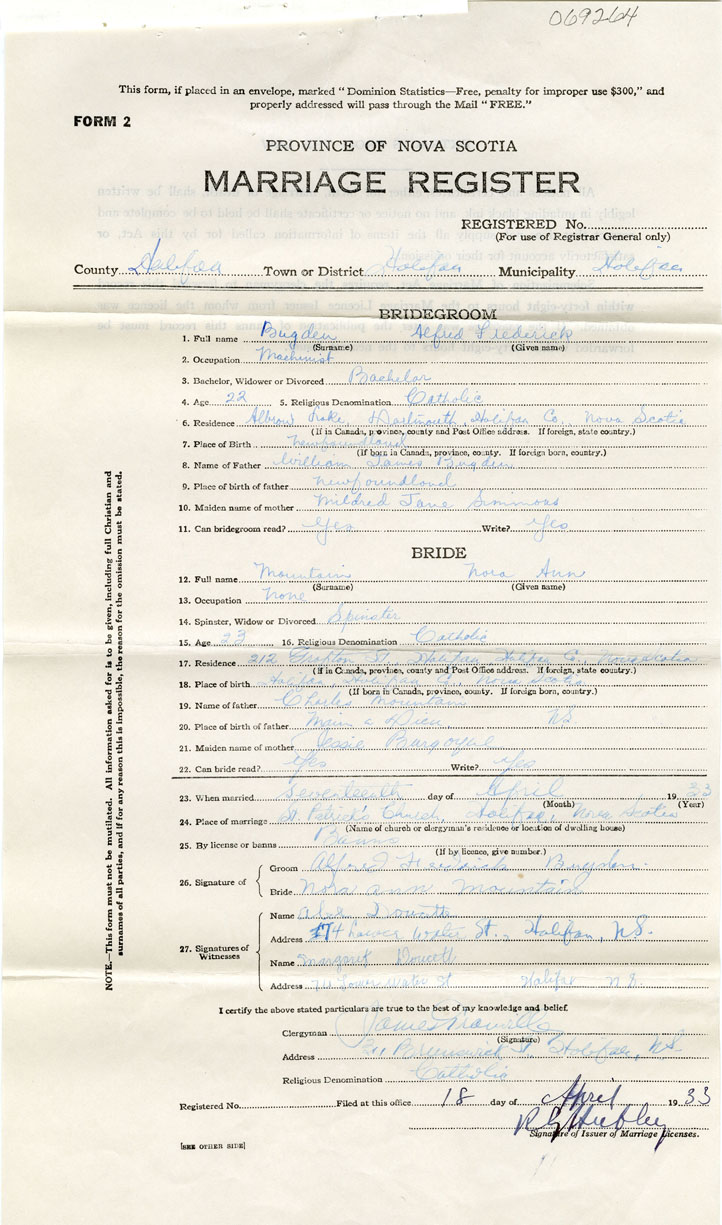 069264
This form, if placed in an envelope, marked "Dominion Statistics—Free, penalty for improper use $300," and
properly addressed will pass through the Mail "FREE."
FORM 2
PROVINCE OF NOVA SCOTIA
MARRIAGE REGISTER
REGISTERED No.
(For use of Registrar General only)
County Halifax Town or District Halifax Municipality Halifax
BRIDEGROOM
1. Full name Bugden Alfred Frederick
(Surname) (Given name)
2. Occupation Machinist
3. Bachelor, Widower or Divorced Bachelor
4. Age 22 5. Religious Denomination Catholic
6. Residence Albrow Lake, Dartmouth, Halifax Co., Nova Scotia
(If in Canada, province, county and Post Office address. If foreign, state country.)
7. Place of Birth Newfoundland
(If born in Canada, province, county. If foreign born, country.)
8. Name of Father William James Bugden
9. Place of birth of father Newfoundland
10. Maiden name of mother Mildred Jane Simmons
11. Can bridegroom read? Yes Write? Yes
BRIDE
12. Full name Mountain Nora Ann
(Surname) (Given name)
13. Occupation None
14. Spinster, Widow or Divorced Spinster
15. Age 23 16. Religious Denomination Catholic
17. Residence 212 Grafton St., Halifax, Halifax Co., Nova Scotia
(If in Canada, province, county and Post Office address. If foreign, state country.)
18. Place of birth Halifax, Halifax Co., Nova Scotia
(If born in Canada, province, county. If foreign born, country.)
19. Name of father Charles Mountain
20. Place of birth of father Main a Dieu NS
21. Maiden name of mother Jessie Burgoyne
22. Can bride read? Yes Write? Yes
23. When married Seventeenth day of April 1933
(Month) (Year)
24. Place of marriage St. Patrick's Church, Halifax, Nova Scotia
(Name of church or clergyman's residence or location of dwelling house)
25. By license or banns Banns
(If by licence, give number.)
26. Signature of
Groom Alfred Frederick Bugden
Bride Nora Ann Mountain
27. Signatures of Witnesses
Name Doucette
Address 174 Lower Water St., Halifax, N.S.
Name Margaret Doucett
Address 74 Lower Water St Halifax N.S.
I certify the above stated particulars are true to the best of my knowledge and belief.
Clergyman James
(Signature)
Address Brunswick St., Halifax, NS
Religious Denomination Catholic
Registered No. Filed at this office 18 day of April 1933
Signature of Issuer of Marriage Licenses.
[SEE OTHER SIDE]
NOTE.—This form must not be mutilated. All information asked for is to be given, including full Christian and
surnames of all parties, and if for any reason this is impossible, the reason for the omission must be stated.